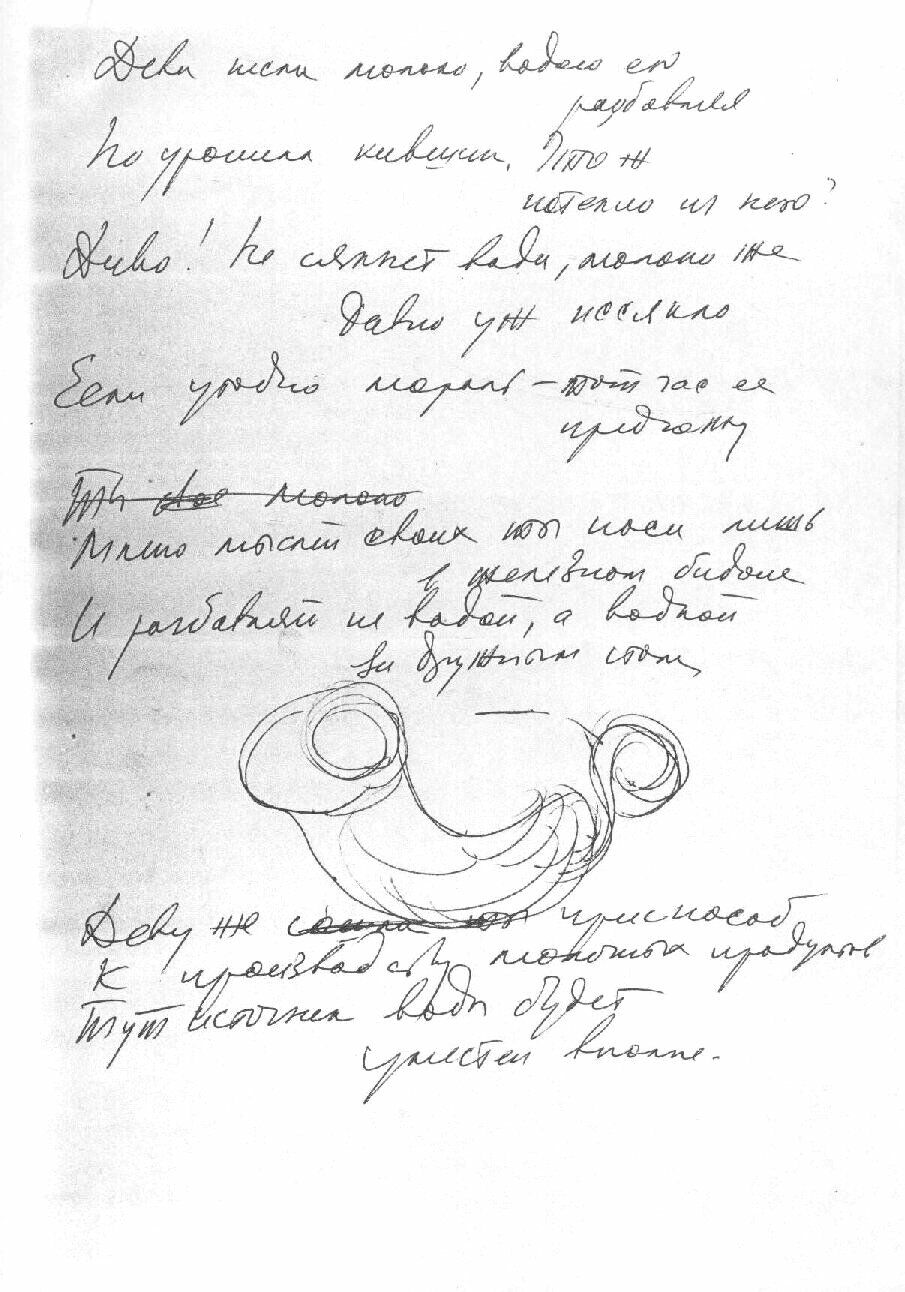 Дева несла молоко, водою его
разбавляя
Но уронила кувшин. Что ж
потекло из него?
Диво! Не сякнет вода, молоко же
давно уж иссякло
Если угодно мораль – тотчас ее
преподам
Ты свое молоко
Млеко мыслей своих ты носи лишь
в железном бидоне
И разбавляй не водой, а водкой
за дружным столом
Деву же ты приспособь
К производству молочных продуктов
Тут источник воды будет
уместен вполне.